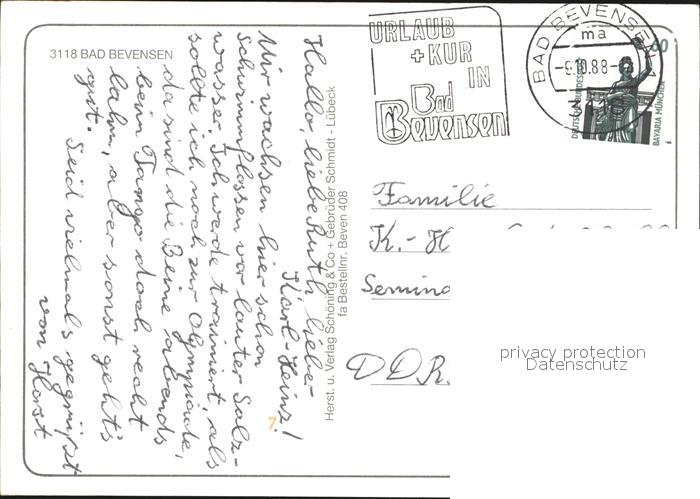 3118 BAD BEVENSEN
Hallo, liebe Ruth, lieber
Karl-Heinz!
Mir wachsen hier schon
Schwimmflossen vor lauter Salz-
wasser. Ich werde trainiert, als
sollte ich noch zur Olympiade,
da sind die Beine abends
beim Tango doch recht
lahm, aber sonst geht's
gut.
Seid vielmals gegrüßt
von Horst
Herst. u. Verlag Schöning & Co + Gebrüder Schmidt - Lübeck
fa Bestellnr. Beven 408
7.
URLAUB
+ KUR
IN
Bad
Bevensen
BAD BEVENSEN 1
ma
-9.10.88-
3118
60
DEUTSCHE BUNDESPOST
BAVARIA MÜNCHEN
Familie
K.-H
Semina
DDR.
privacy protection
Datenschutz